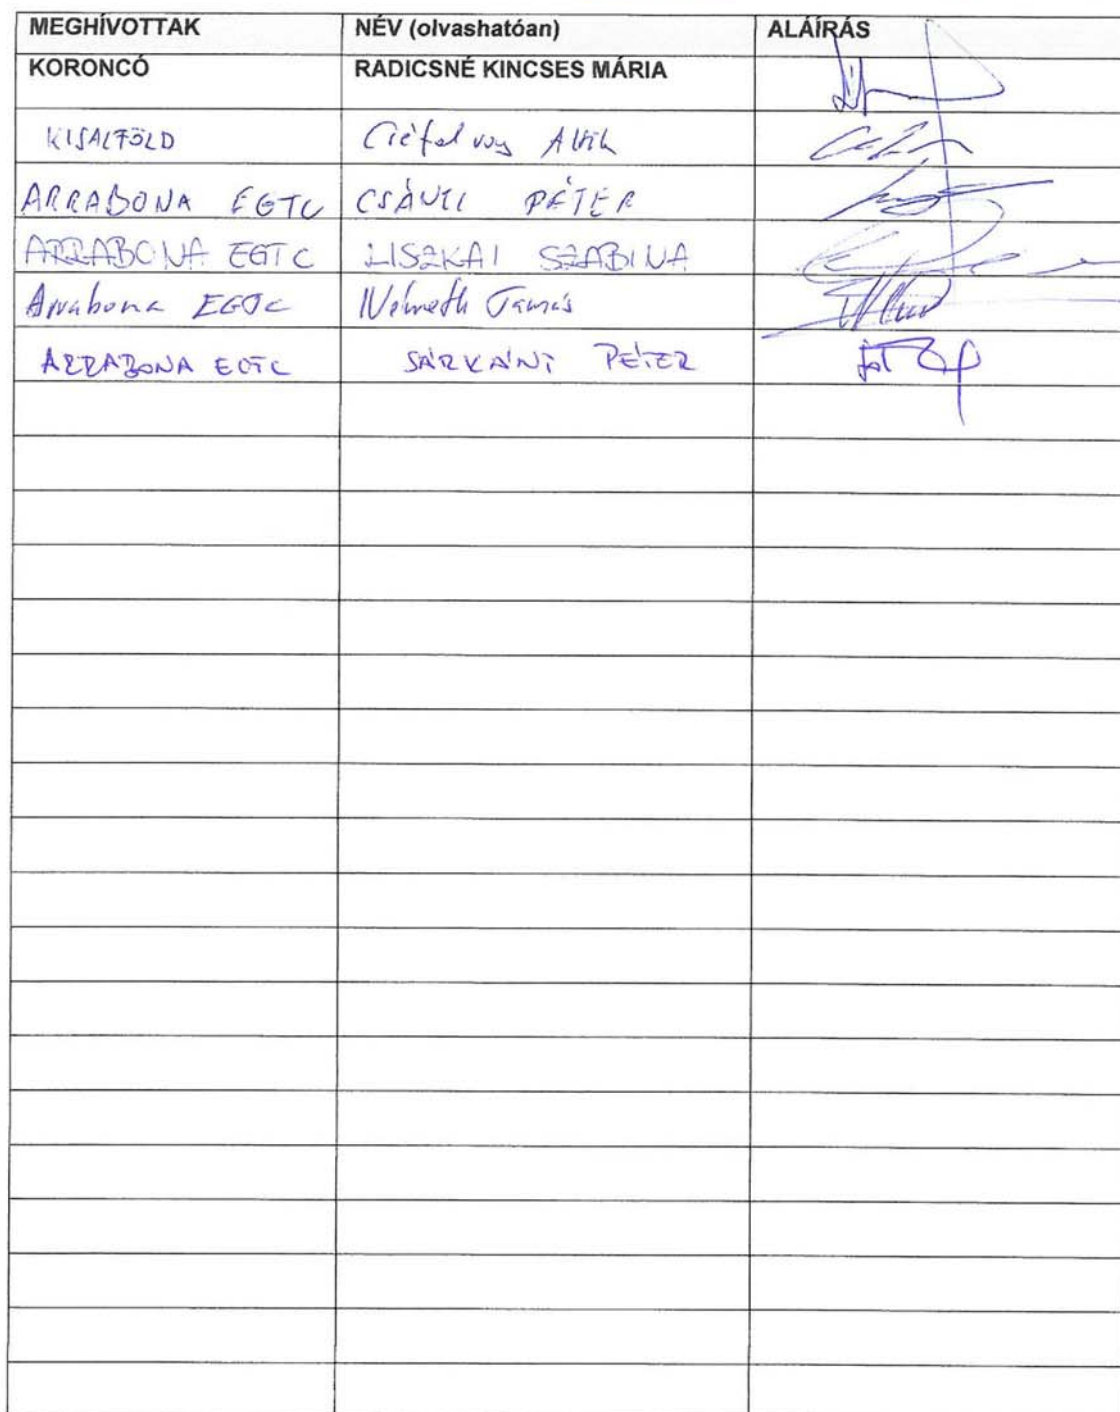 MEGHÍVOTTAK NÉV (olvashatóan) ALÁÍRÁS
KORONCÓ RADICSNÉ KINCSES MÁRIA
KISALFÖLD
ARRABONA EGTC CSÁNYI PÉTER
ARRABONA EGTC LISZKAI SZABINA
Arrabona EGTC Németh Tamás
ARRABONA EGTC SÁRKÁNY PÉTER